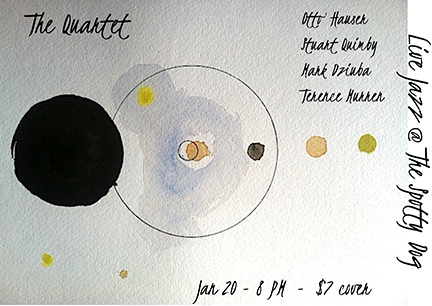 The Quartet
Otto Hauser
Stuart Quimby
Mark Dziuba
Terence Murren
Live Jazz @ The Spotty Dog
Jan 20 - 8 PM - $7 cover